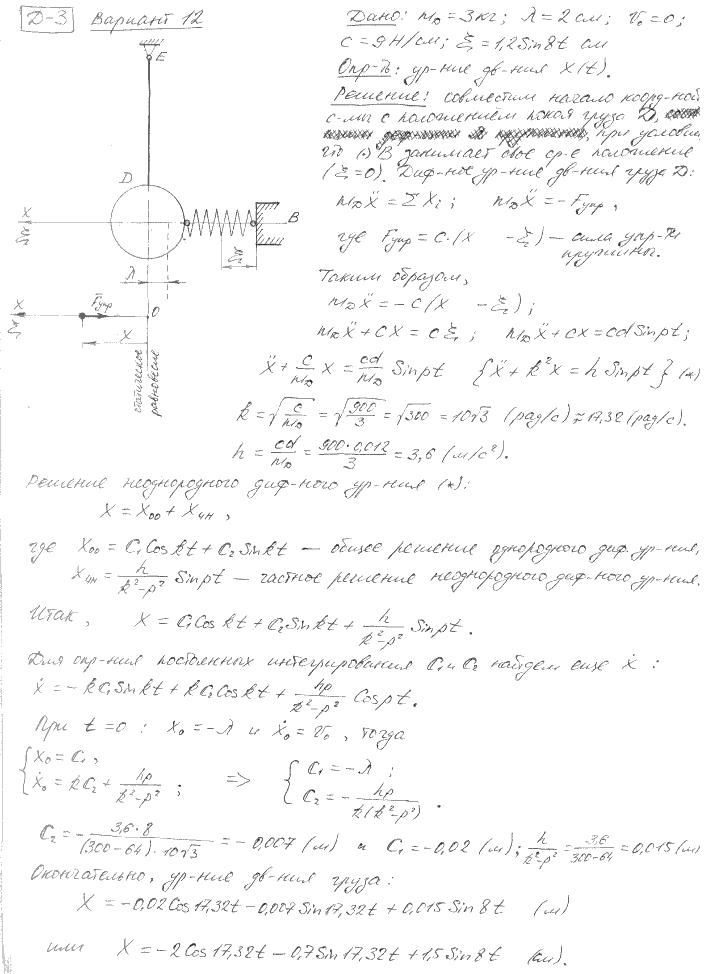 Д-3 Вариант 12
Дано: m_D = 3 кг; λ = 2 см; V₀ = 0;
c = 9 Н/см; ξ = 1,2 Sin 8t см
Опр-ть: ур-ние дв-ния X(t).
Решение: совместим начало коорд-ной
с-мы с положением покоя груза D,
при условии,
что (·) B занимает свое ср-е положение
(ξ = 0). Диф-ное ур-ние дв-ния груза D:
m_D ẍ = ΣXᵢ; m_D ẍ = -Fупр,
где Fупр = c·(x - ξ) — сила упр-ти
пружины.
Таким образом,
m_D ẍ = -c(x - ξ);
m_D ẍ + cx = cξ; m_D ẍ + cx = cd Sin pt;
E
D
X
ξ
B
ξ
λ
X
ξ
F̄упр
O
X
статическое
равновесие
ẍ + c/m_D x = cd/m_D Sin pt {ẍ + k²x = h Sin pt} (*)
k = √(c/m_D) = √(900/3) = √300 = 10√3 (рад/с) ≈ 17,32 (рад/с).
h = cd/m_D = 900·0,012/3 = 3,6 (м/с²).
Решение неоднородного диф-ного ур-ния (*):
X = Xоо + Xчн,
где Xоо = C₁ Cos kt + C₂ Sin kt — общее решение однородного диф. ур-ния,
Xчн = h/(k²-p²) Sin pt — частное решение неоднородного диф-ного ур-ния.
Итак, X = C₁ Cos kt + C₂ Sin kt + h/(k²-p²) Sin pt.
Для опр-ния постоянных интегрирования C₁ и C₂ найдем еще ẋ:
ẋ = -kC₁ Sin kt + kC₂ Cos kt + hp/(k²-p²) Cos pt.
При t = 0: X₀ = -λ и ẋ₀ = V₀, тогда
{X₀ = C₁, ẋ₀ = kC₂ + hp/(k²-p²); => {C₁ = -λ; C₂ = -hp/(k(k²-p²)).
C₂ = -3,6·8/((300-64)·10√3) = -0,007 (м) и C₁ = -0,02 (м); h/(k²-p²) = 3,6/(300-64) = 0,015 (м)
Окончательно, ур-ние дв-ния груза:
X = -0,02 Cos 17,32t - 0,007 Sin 17,32t + 0,015 Sin 8t (м)
или X = -2 Cos 17,32t - 0,7 Sin 17,32t + 1,5 Sin 8t (см).